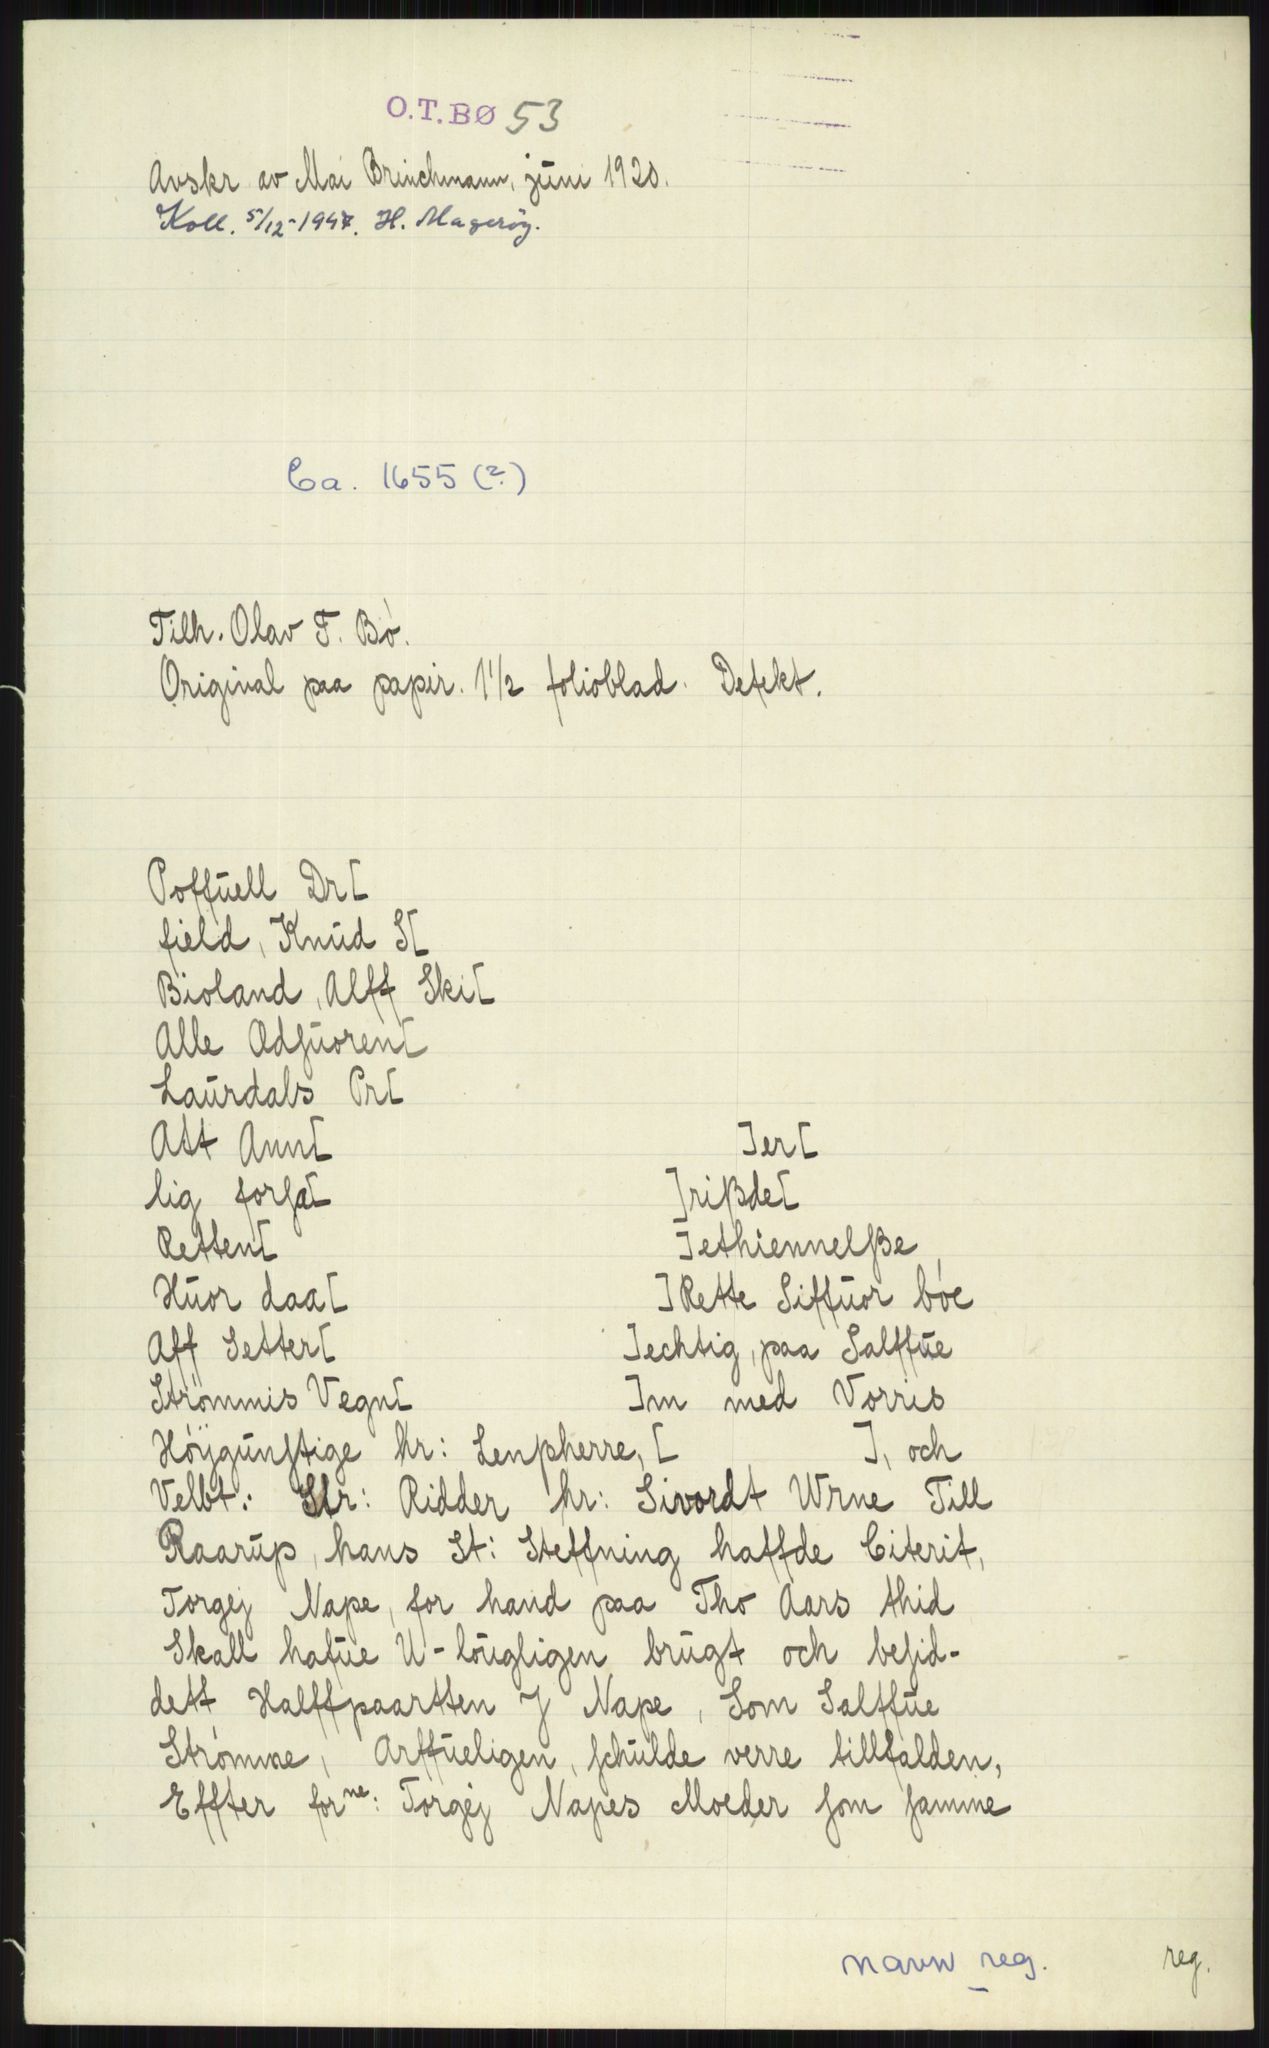 O.T.BØ 53
Avskr av Mai Brinchmann, juni 1920.
Koll. 5/12-1947. H. Magerøy.
Ca. 1655 (?)
Tilh. Olav F. Bø.
Original paa papir. 1 1/2 folioblad. Defekt.
Poffuell Dr[
field, Knud S[
Bioland, Alff Ski[
Alle Edsuoren[
Laurdals Pr[
Att Ann[ ]er[
lig forsæ[ ]rißde[
Retten[ ]ethiennelße,
Huor daa[ ]Rette Siffuor bøe
Aff Setter[ ]echtig, paa Salffue
Strømmis Vegn[ ]m med Vorris
Høÿgunstige hr: Lensherre, [ ], och
Velbt: Str: Ridder hr: Sivordt Wrne Till
Raarup, hans St: Steffning haffde Citerit,
Torgej Nape, for hand paa Tho Aars thid
Skall hafue U-lougligen brugt och besid-
dett Halffpaartten J Nape, Som Salffue
Strømme, Arffueligen, schulde verre tillfalden,
Effter forne: Torgej Napes Moeder som samme
navn reg.
reg.